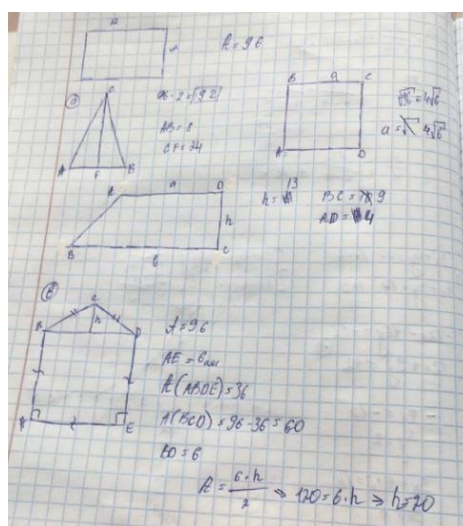 a
A = 96
C
96·2 = 192
AB = 8
CF = 24
A F B
B a C
A D
√96 = 4√6
a = 4√6
A a D
h
B b C
h = 13
BC = 9
AD = 4
C
B h D
A E
A = 96
AE = 6
A(ABDE) = 36
A(BCD) = 96 - 36 = 60
BD = 6
A = 6·h / 2 ⇒ 120 = 6·h ⇒ h = 20